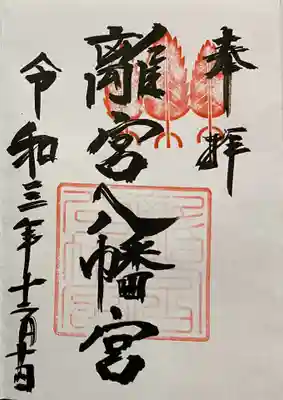 奉拝
離宮八幡宮
令和三年十二月十四日